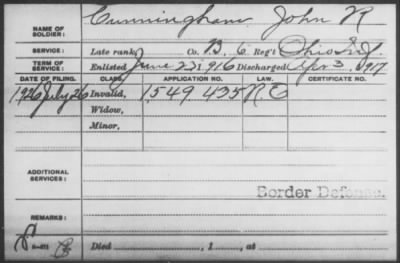 NAME OF SOLDIER: Cunningham, John R
SERVICE: Late rank, Co. B, 6 Reg't Ohio Inf
TERM OF SERVICE: Enlisted June 22, 1916 Discharged Apr 3, 1917
DATE OF FILING. CLASS. APPLICATION NO. LAW. CERTIFICATE NO.
1926 July 26 Invalid, 1,549,435 R.E
Widow,
Minor,
ADDITIONAL SERVICES:
Border Defense.
REMARKS:
Died , 1 , at